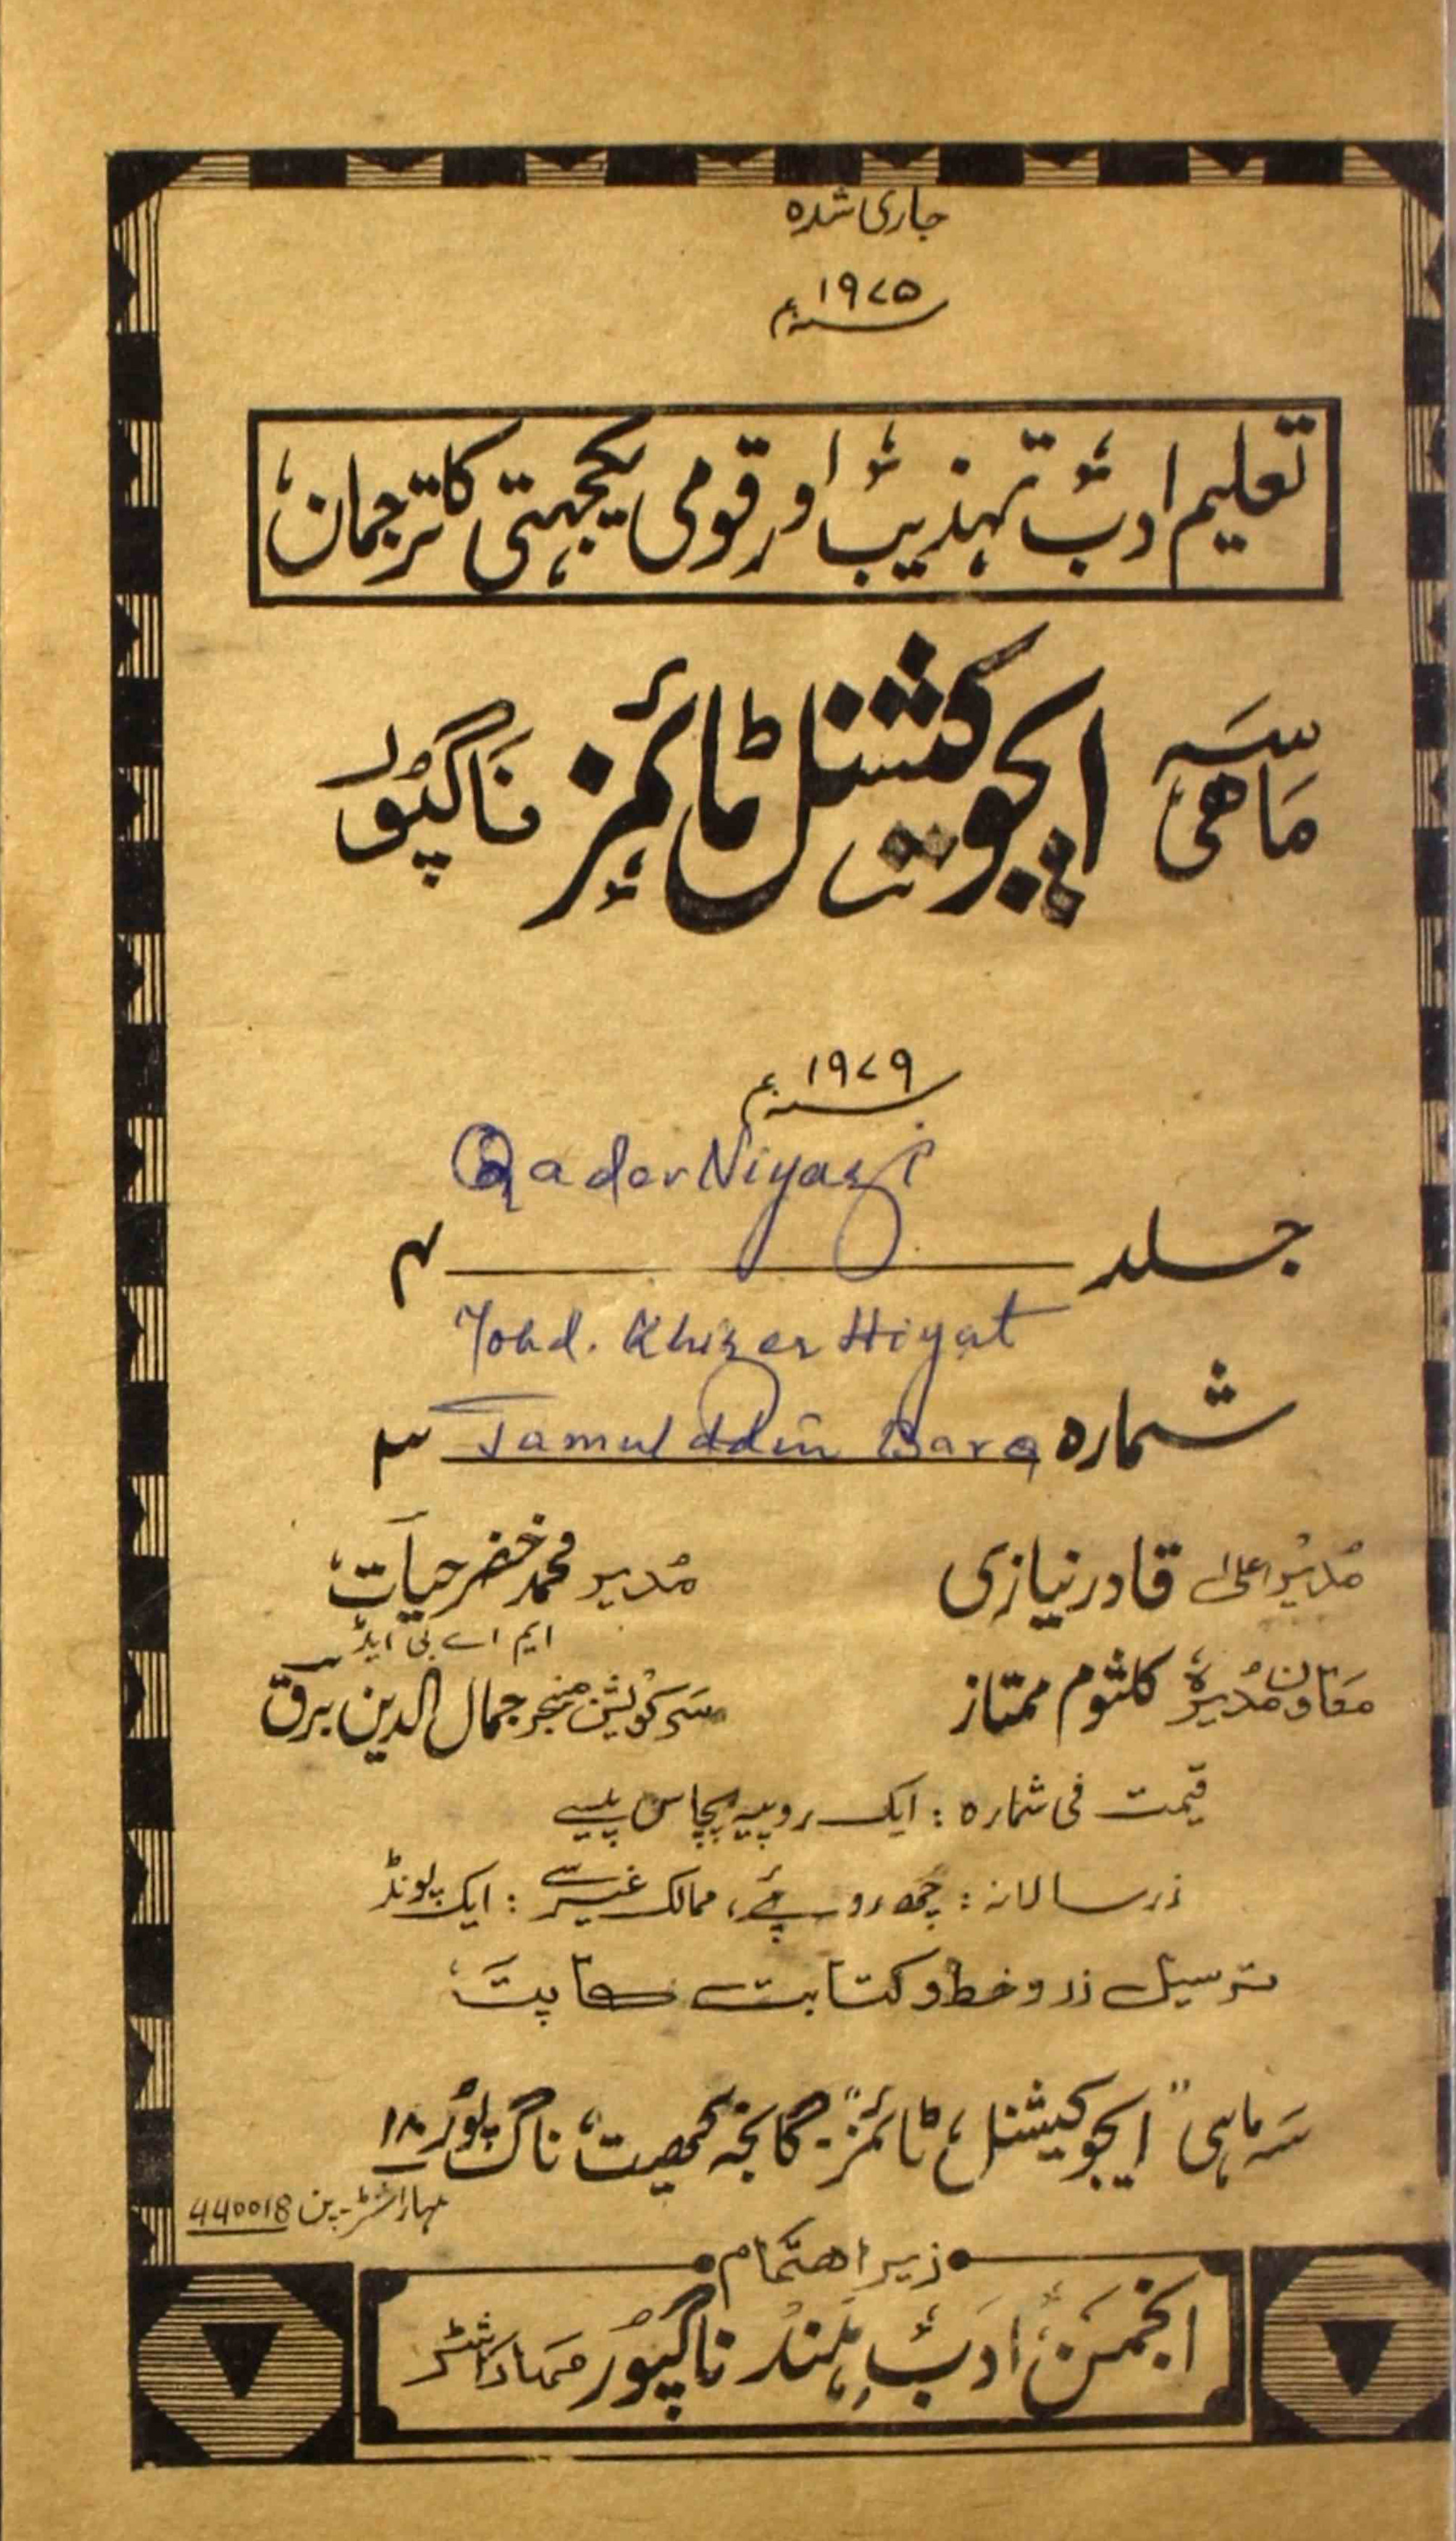 جاری شدہ
۱۹۷۵ء
تعلیم، ادب، تہذیب، اور قومی یکجہتی کا ترجمان
سہ ماهی ایجوکیشنل ٹائمز ناگپور
۱۹۷۹ء
Qader Niyazi
جلد ۴
Mohd. Khizer Hiyat
شمارہ Jamulddin Barq ۳
مدیر اعلیٰ قادر نیازی
مدیر محمد خضر حیات
ایم اے بی ایڈ
معاون مدیرہ کلثوم ممتاز
سرکولیشن منیجر جمال الدین برق
قیمت فی شمارہ : ایک روپیہ پچاس پیسے
زر سالانہ : چھ روپئے، ممالک غیر سے : ایک پونڈ
ترسیل زر و خط و کتابت کا پتہ
سہ ماہی "ایجوکیشنل ٹائمز" گانجہ کھیت، ناگ پور ۱۸
مہاراشٹر۔ پن 440018
زیر اهتمام
انجمن ادب ہند ناگپور مہاراشٹر